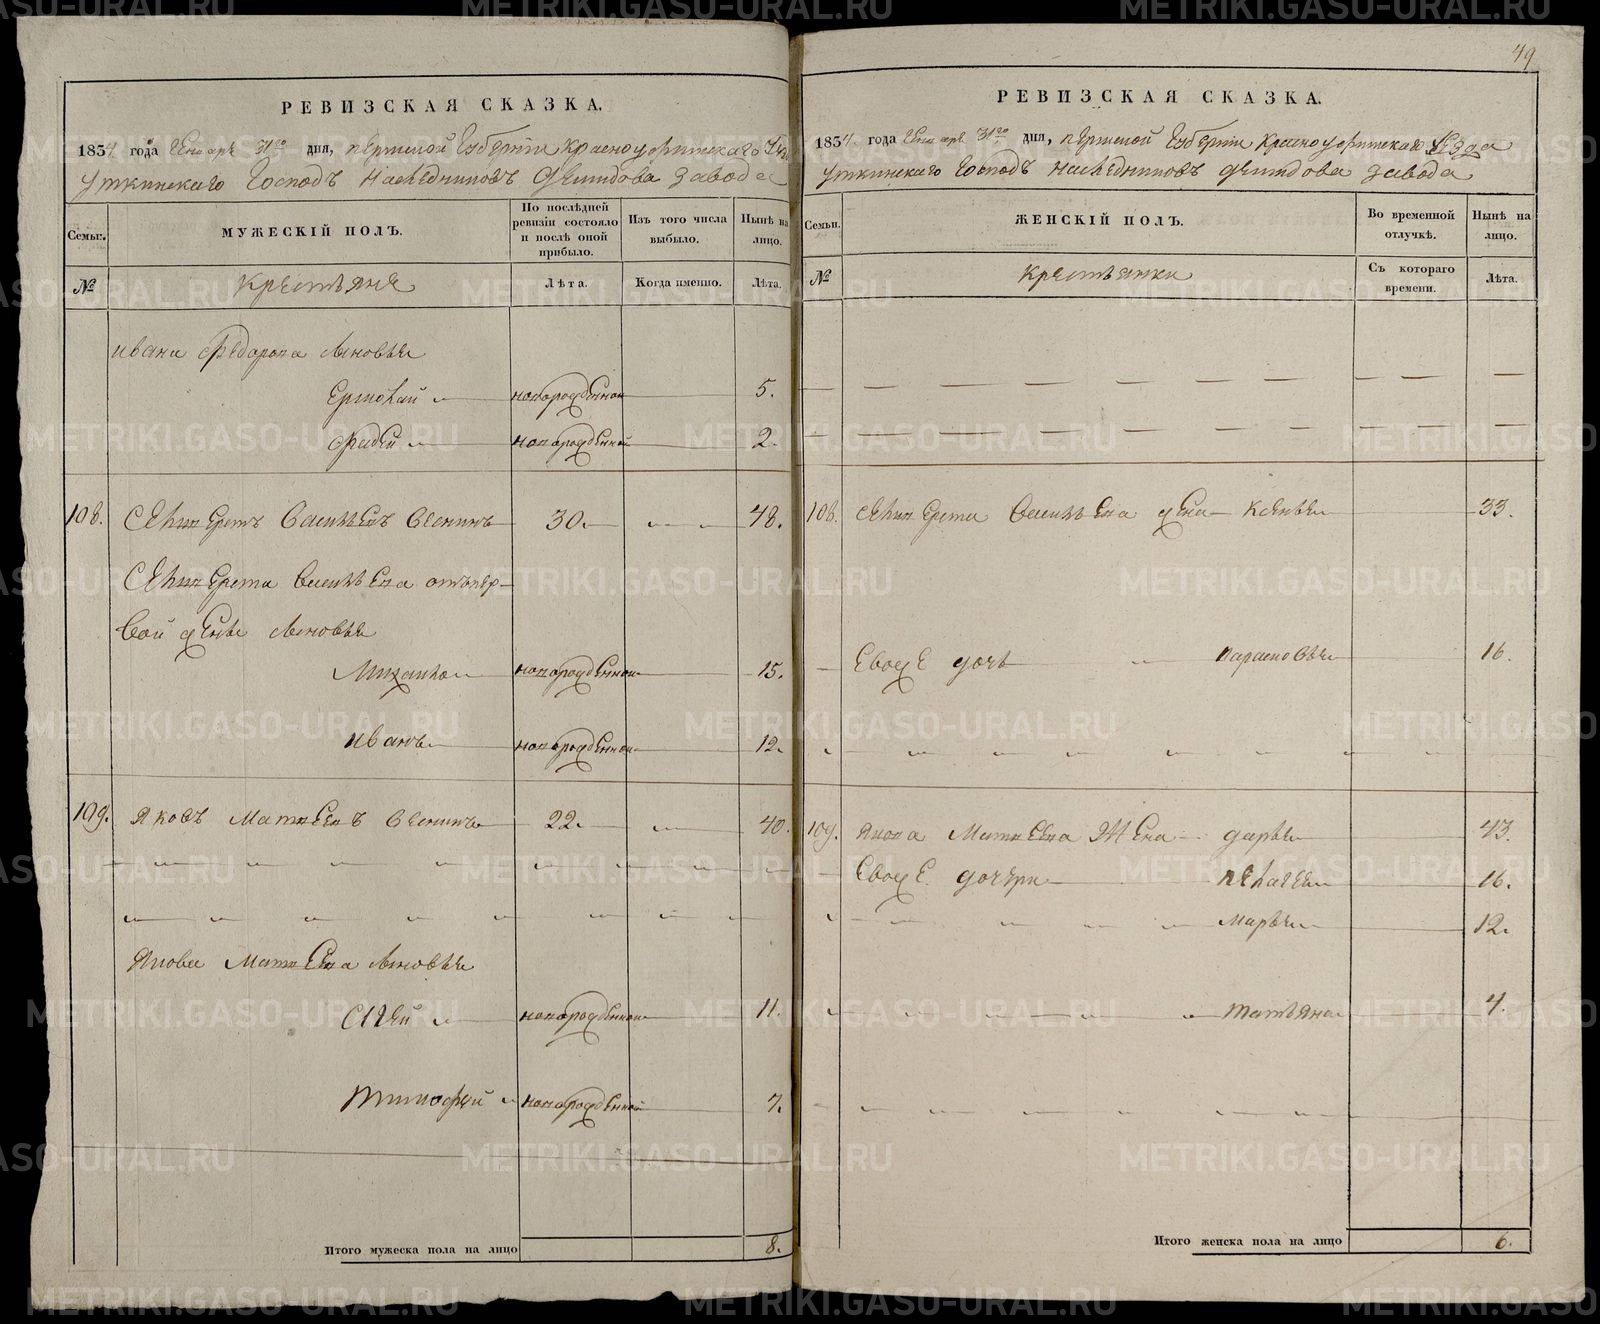 49
РЕВИЗСКАЯ СКАЗКА.
1834 года Генваря 31го дня, Пермской Губернии Красноуфимскаго Уезда
Уткинскаго Господъ Наследниковъ Демидова завода
Семьи.
МУЖЕСКІЙ ПОЛЪ.
По послѣдней ревизіи состояло и послѣ оной прибыло.
Изъ того числа выбыло.
Нынѣ на лицо.
№
Крестьяне
Лѣта.
Когда именно.
Лѣта.
Ивана Федорова сыновья
Ермолай новорожденной 5.
Фадей новорожденной 2.
108. Селиверстъ Васильевъ 30 48.
Селиверста Васильева отъ пер-
вой жены сыновья
Михаило новорожденной 15.
Иванъ новорожденной 12.
109. Яковъ Матвеевъ 22 40.
Якова Матвеева сыновья
Сергей новорожденной 11.
Тимофей новорожденной 7.
Итого мужеска пола на лицо 8.
РЕВИЗСКАЯ СКАЗКА.
1834 года Генваря 31го дня, Пермской Губернии Красноуфимскаго Уезда
Уткинскаго Господъ Наследниковъ Демидова завода
Семьи.
ЖЕНСКІЙ ПОЛЪ.
Во временной отлучкѣ.
Нынѣ на лицо.
№
Крестьянки
Съ котораго времени.
Лѣта.
108. Селиверста Васильева жена Ксенья 33.
Ево же дочь Парасковья 16.
109. Якова Матвеева жена Дарья 43.
Ево же дочери Пелагея 16.
Марья 12.
Татьяна 4.
Итого женска пола на лицо 6.
METRIKI.GASO-URAL.RU